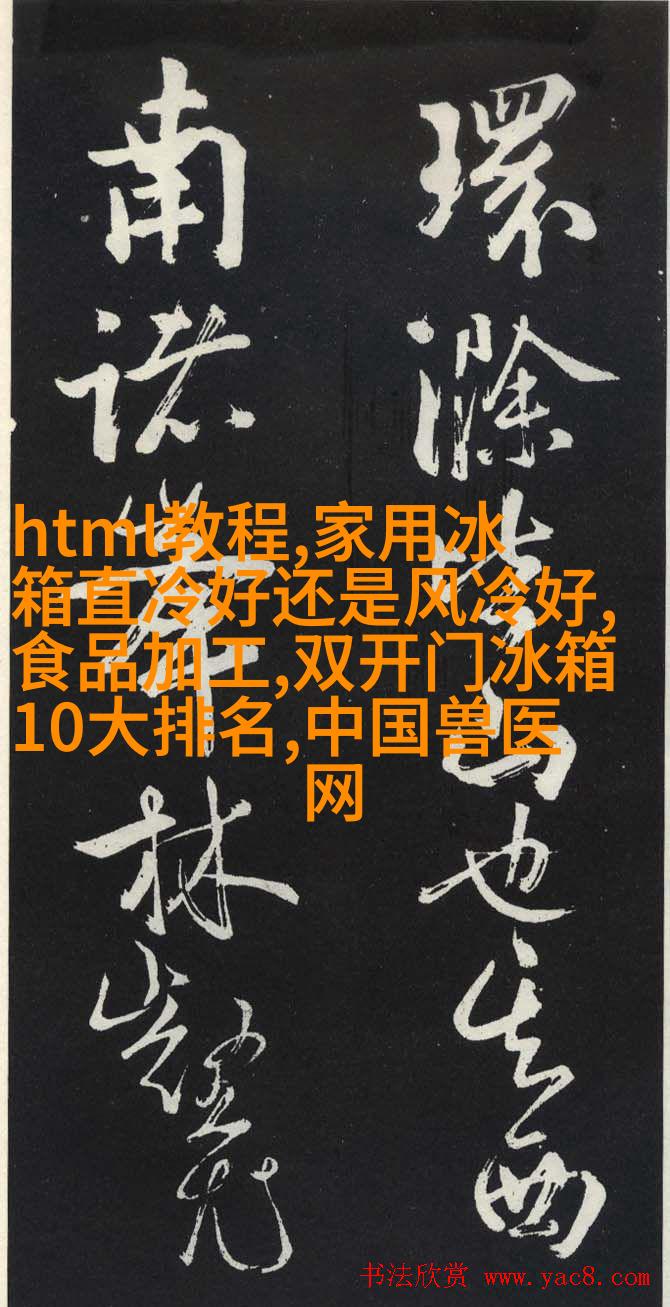 環滁皆山也其西
南諸峯林壑尤
html教程,家用冰
箱直冷好还是风冷好,
食品加工,双开门冰箱
10大排名,中国兽医
网
书法欣赏 www.yac8.com